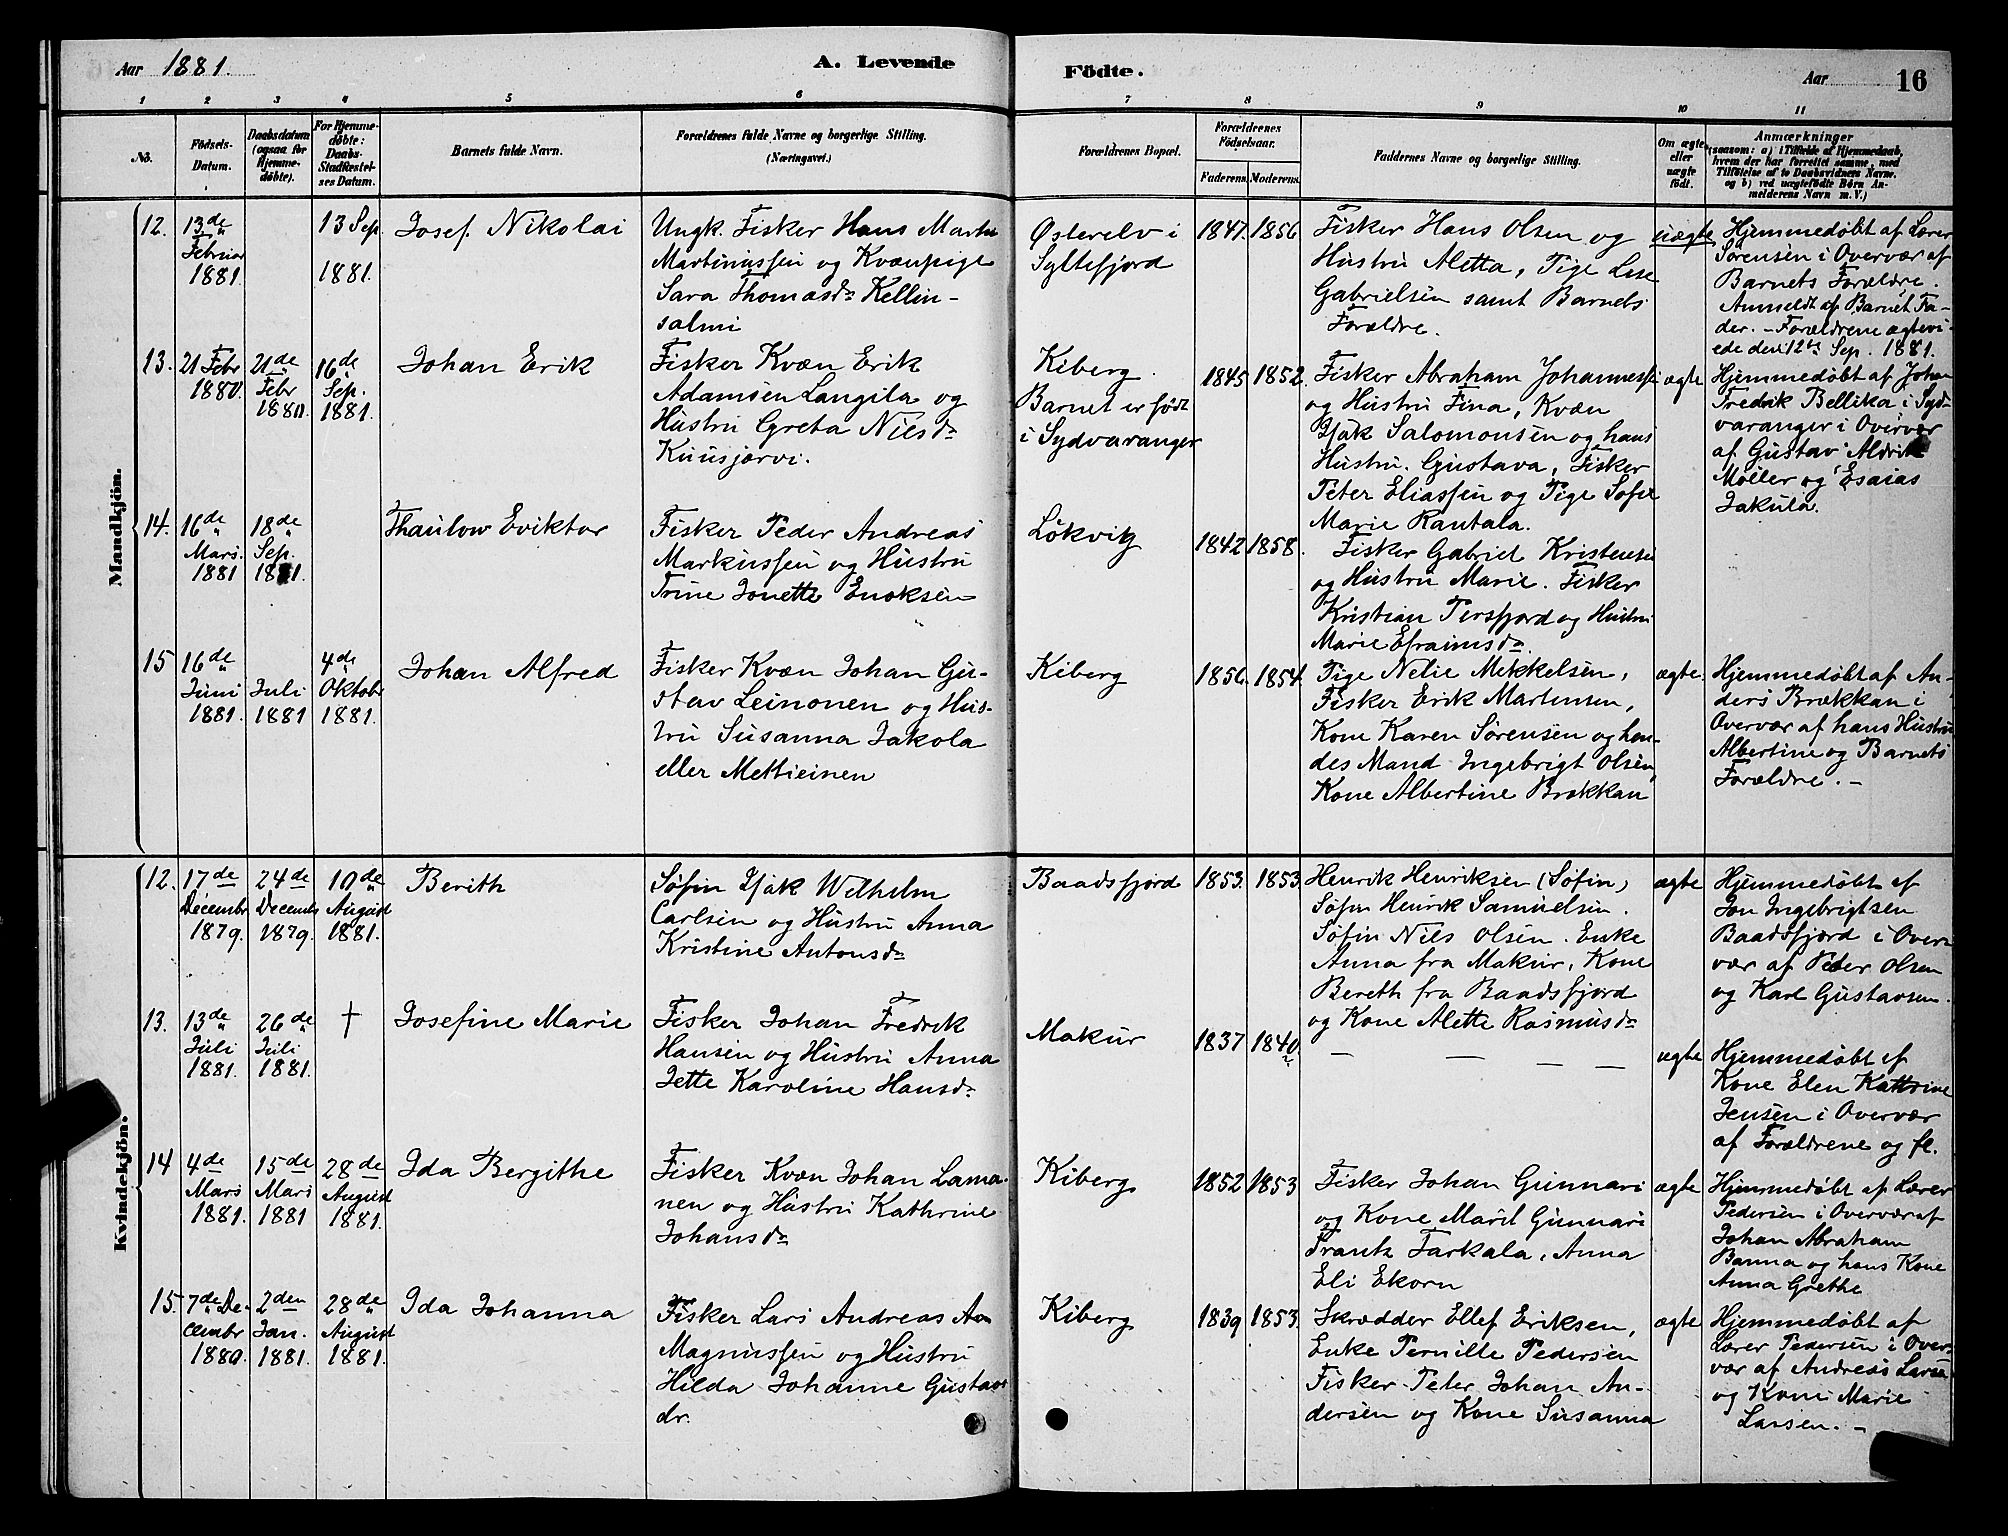 Aar 1881.
A. Levende
Födte.
Aar
16
1 2 3 4 5 6 7 8 9 10 11
No.
Födsels-
Datum.
Daabsdatum
(ogsaa for
Hjemme-
døbte).
For Hjemme-
døbte:
Daabs-
Stadfæstel-
ses Datum.
Barnets fulde Navn.
Forældrenes fulde Navne og borgerlige Stilling.
(Næringsvei.)
Forældrenes Bopæl.
Forældrenes
Födselsaar.
Faderens. Moderens.
Faddernes Navne og borgerlige Stilling.
Om ægte
eller
uægte
født.
Anmærkninger
(saasom: a) i Tilfælde af Hjemmedaab,
hvem der har forrettet samme, med
Tilföielse af to Daabsvidners Navne.
og b) ved uægtefödte Börn An-
melderens Navn m. V.)
Mandkjön.
12.
13de
Februar
1881.
13 Sep.
1881.
Josef Nikolai
Ungk. Fisker Hans Martin
Martinussen og Kvænpige
Sara Thomasdr Kellin-
salmi
Østerelv i
Syltefjord
1847. 1856
Fisker Hans Olsen og
Hustru Aletta, Pige Lise
Gabrielsen samt Barnets
Forældre.
uægte
Hjemmedøbt af Lærer
Sørensen i Overvær af
Barnets Forældre.
Anmeldt af Barnet Fa-
der. - Forældrene ægtevi-
ede den 12te Sep. 1881.
13.
21 Febr
1880.
21de
Febr
1880.
16de
Sep.
1881.
Johan Erik
Fisker Kvæn Erik
Adamsen Langila og
Hustru Greta Nilsdr
Kuusjærvi.
Kiberg.
Barnet er født
i Sydvaranger
1845 1852.
Fisker Abraham Johannessen
og Hustru Fina, Kvæn
Isak Salomonsen og hans
Hustru. Gustava, Fisker
Peter Eliassen og Pige Sofie
Marie Rautala.
ægte
Hjemmedøbt af Johan
Fredrik Bellika i Syd-
varanger i Overvær
af Gustav Aldrik
Møller og Esaias
Jakula.
14.
16de
Mars.
1881
18de
Sep.
1881.
Thaulow Eviktor
Fisker Peder Andreas
Markussen og Hustru
Trine Jonette Enoksen
Løkvig
1842 1858.
Fisker Gabriel Kristensen
og Hustru Marie. Fisker
Kristian Persfjord og Hustru
Marie Efraimsdr.
15
16de
Juni
1881.
Juli
1881
4de
Oktobr
1881.
Johan Alfred
Fisker Kvæn Johan Gu-
stav Leinonen og Hus-
tru Susanna Jakola
eller Mettieinen
Kiberg
1856. 1854.
Pige Nelie Mikkelsen,
Fisker Erik Martensen,
Kone Karen Sørensen og hen-
des Mand Ingebrigt Olsen,
Kone Albertine Brækkan
ægte.
Hjemmedøbt af An-
ders Brækkan i
Overvær af hans Hustru
Albertine og Barnets
Forældre. -
Kvindekjön.
12.
17de
Decembr
1879.
24de
Decembr
1879.
10de
August
1881.
Berith
Søfin Isak Wilhelm
Carlsen og Hustru Anna
Kristine Antonsdr
Baadsfjord
1853. 1853.
Henrik Henriksen (Søfin,)
Søfin Henrik Samuelsen.
Søfin Nils Olsen. Enke
Anna fra Makur, Kone
Bereth fra Baadsfjord
og Kone Alette Rasmusdr
ægte
Hjemmedøbt af
Jon Ingebrigtsen
Baadsfjord i Over-
vær af Peder Olsen
og Karl Gustavsen.
13.
13de
Juli
1881.
26de
Juli
1881.
†
Josefine Marie
Fisker Johan Fredrik
Hansen og Hustru Anna
Jette Karoline Hansdr
Makur
1837 1840.
— — — —
ægte
Hjemmedøbt af
Kone Elen Kathrine
Jensen i Overvær
af Forældrene og fl.
14
4de
Mars
1881.
15de
Mars
1881
28de
August
1881.
Ida Bergithe
Fisker Kvæn Johan Lama-
nen og Hustru Kathrine
Johansdr
Kiberg
1852 1853
Fisker Johan Gunnari
og Kone Maril Gunnari
Frants Farkala, Anna
Eli Ekorn
ægte
Hjemmedøbt af Lærer
Pedersen i Overvær af
Johan Abraham
Banna og hans Kone
Anna Grethe
15.
7de De-
cembr
1880.
2den
Jan.
1881.
28de
August
1881.
Ida Johanna
Fisker Lars Andreas
Magnussen og Hustru
Hilda Johanne Gustavs
dr.
Kiberg
1839 1853.
Skrædder Ellef Eriksen,
Enke Pernille Pedersen
Fisker Peter Johan An-
dersen og Kone Susanna
ægte
Hjemmedøbt af
Lærer Pedersen i Over-
vær af Andreas Larsen
og Kone Marie
Larsen. -